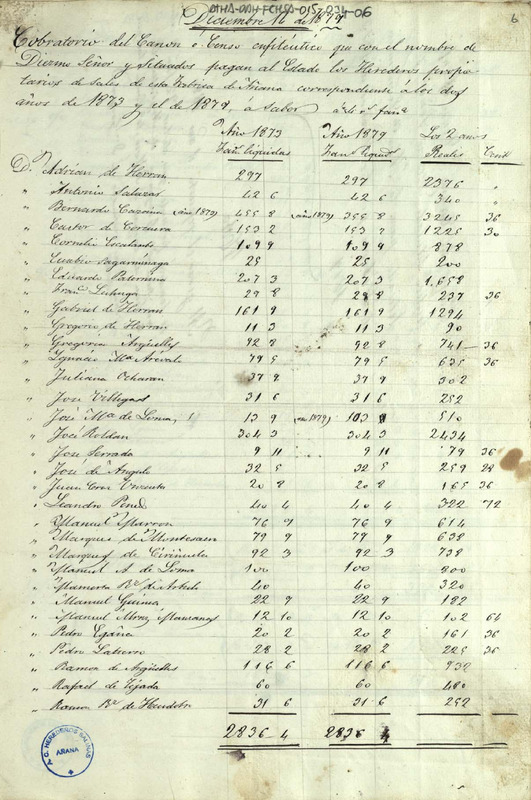 AHHA-DAH-FCHSA-015-034-06
6
Diciembre 16 de 1879
Cobratorio del Canon o Censo enfiteútico que con el nombre de
Diezmo Señor y situados pagan al Estado los Herederos propie
tarios de Sales de esta Fabrica de Añana correspondiente á los dos
años de 1873 y el de 1879, á Saber á 4 r. fan.ª
Año 1873 Año 1879 Los 2 años
Fan.s liquidas Fan.s liquid.s Reales Cent
D. Adrian de Herran 297 297 2376 "
" Antonio Saluzar 42 6 42 6 340 "
" Bernardo (año 1879) 455 8 (año 1879) 355 8 3245 36
" Castor de Corcuera 153 2 153 2 1225 30
" Cornelio Escalante 109 9 109 9 878
" Eusebio Sagarminaga 25 25 200
" Eduardo Paternina 207 3 207 3 1.658
" Fran.co 29 8 29 8 237 36
" Gabriel de Herran 161 9 161 9 1294
" Gregorio de Herran 11 3 11 3 90
" Gregorio Argüelles 92 8 92 8 741 36
" Ignacio M.ª Arévalo 79 5 79 5 635 36
" Juliana Ocharan 37 9 37 9 302
" José Villegas 31 6 31 6 252
" José M.ª de Loma, 13 9 (año 1879) 103 9 510
" José Roldan 304 3 304 3 2434
" José Serrada 9 11 9 11 79 36
" José de Angulo 32 5 32 5 259 28
" Juan Cruz Unzueta 20 8 20 8 165 36
" Leandro Pined 40 4 40 4 322 72
" Manuel Marron 76 9 76 9 614
" Marques de Montesan 79 9 79 9 638
" Marques de Ciriñuela 92 3 92 3 738
" Manuel A. de Loma 100 100 800
" Mamerta B.z 40 40 320
" Manuel Guinea 22 9 22 9 182
" Manuel Alvaz Manzanos 12 10 12 10 102 64
" Pedro Egaña 20 2 20 2 161 36
" Pedro Laborro 28 2 28 2 225 36
" Ramon de Argüelles 116 6 116 6 932
" Rafael de Tejada 60 60 480
" Ramon B.z de 31 6 31 6 252
2836 4 2836 4
A. C. HEREDEROS SALINAS
AÑANA